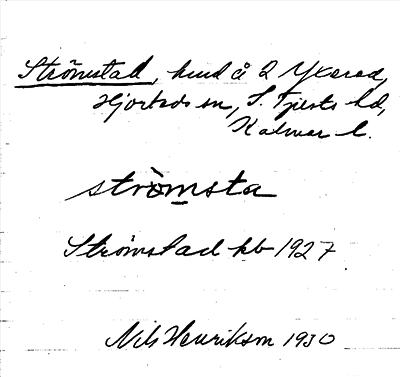 Strömstad, hmd å 2 Ykered,
Hjorteds sn, S. Tjusts hd,
Kalmar l.
strömsta
Strömstad kb 1927
Nils Henrikson 1930